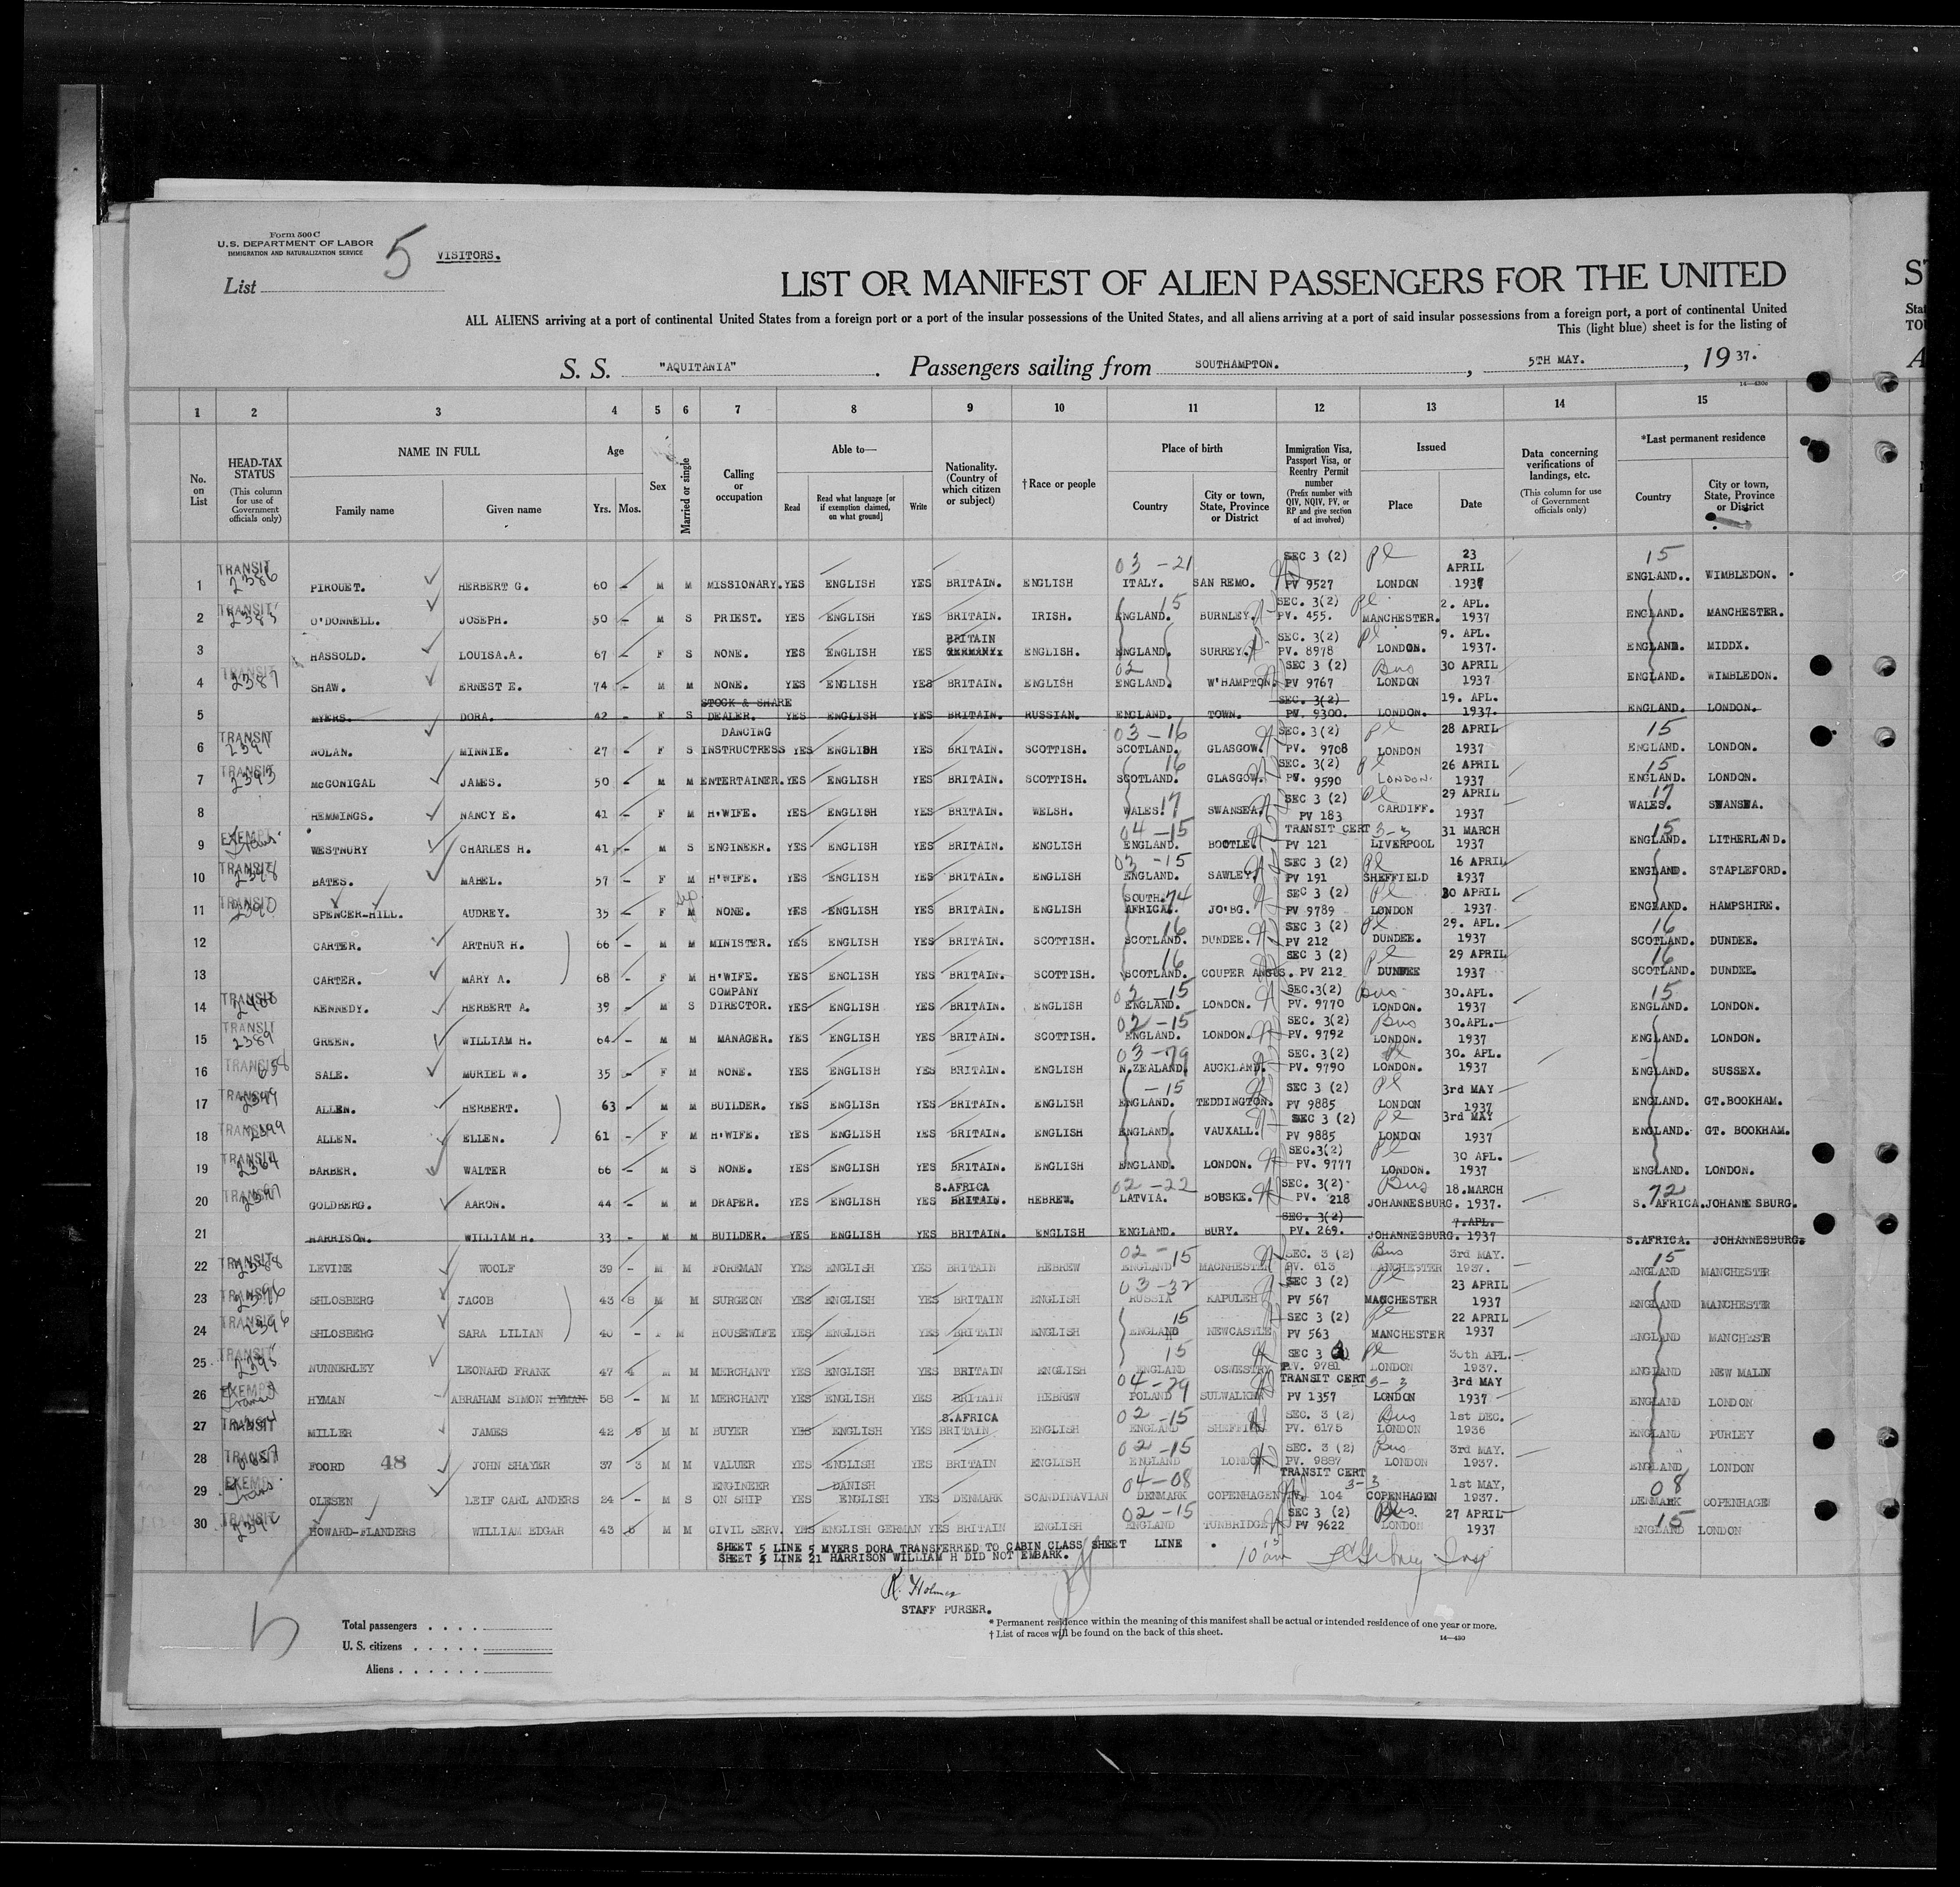 Form 500 C
U.S. DEPARTMENT OF LABOR
IMMIGRATION AND NATURALIZATION SERVICE
5 VISITORS.
List
LIST OR MANIFEST OF ALIEN PASSENGERS FOR THE UNITED
ALL ALIENS arriving at a port of continental United States from a foreign port or a port of the insular possessions of the United States, and all aliens arriving at a port of said insular possessions from a foreign port, a port of continental United
This (light blue) sheet is for the listing of
S. S. "AQUITANIA". Passengers sailing from SOUTHAMPTON., 5TH MAY., 1937.
14—430c
1 2 3 4 5 6 7 8 9 10 11 12 13 14 15
No. on List
HEAD-TAX STATUS (This column for use of Government officials only)
NAME IN FULL Family name Given name
Age Yrs. Mos.
Sex
Married or single
Calling or occupation
Able to— Read Read what language [or if exemption claimed, on what ground] Write
Nationality. (Country of which citizen or subject)
†Race or people
Place of birth Country City or town, State, Province or District
Immigration Visa, Passport Visa, or Reentry Permit number (Prefix number with QIV, NQIV, PV, or RP and give section of act involved)
Issued Place Date
Data concerning verifications of landings, etc. (This column for use of Government officials only)
*Last permanent residence Country City or town, State, Province or District
1 TRANSIT 2386 PIROUET. HERBERT G. 60 - M M MISSIONARY. YES ENGLISH YES BRITAIN. ENGLISH 03-21 ITALY. SAN REMO. SEC 3 (2) PV 9527 Pl LONDON 23 APRIL 1937 15 ENGLAND.. WIMBLEDON.
2 TRANSIT 2385 O'DONNELL. JOSEPH. 50 - M S PRIEST. YES ENGLISH YES BRITAIN. IRISH. 15 ENGLAND. BURNLEY. SEC. 3(2) PV. 455. Pl MANCHESTER. 2. APL. 1937 ENGLAND. MANCHESTER.
3 HASSOLD. LOUISA.A. 67 - F S NONE. YES ENGLISH YES BRITAIN GERMANY. ENGLISH. ENGLAND. SURREY. SEC. 3(2) PV. 8978 Pl LONDON. 9. APL. 1937. ENGLAND. MIDDX.
4 TRANSIT 2387 SHAW. ERNEST E. 74 - M M NONE. YES ENGLISH YES BRITAIN. ENGLISH 02 ENGLAND. W'HAMPTON. SEC 3 (2) PV 9767 Bus LONDON 30 APRIL 1937 ENGLAND. WIMBLEDON.
5 MYERS. DORA. 42 - F S STOCK & SHARE DEALER. YES ENGLISH YES BRITAIN. RUSSIAN. ENGLAND. TOWN. SEC. 3(2) PV. 9300. LONDON. 19. APL. 1937. ENGLAND. LONDON.
6 TRANSIT 2391 NOLAN. MINNIE. 27 - F S DANCING INSTRUCTRESS YES ENGLISH YES BRITAIN. SCOTTISH. 03-16 SCOTLAND. GLASGOW. SEC. 3(2) PV. 9708 Pl LONDON 28 APRIL 1937 15 ENGLAND. LONDON.
7 TRANSIT 2393 McGONIGAL JAMES. 50 - M M ENTERTAINER. YES ENGLISH YES BRITAIN. SCOTTISH. 16 SCOTLAND. GLASGOW. SEC. 3(2) PV. 9590 Pl LONDON. 26 APRIL 1937 15 ENGLAND. LONDON.
8 HEMMINGS. NANCY E. 41 - F M H'WIFE. YES ENGLISH YES BRITAIN. WELSH. WALES. 17 SWANSEA. SEC 3 (2) PV 183 Pl CARDIFF. 29 APRIL 1937 17 WALES. SWANSEA.
9 EXEMPT Trans WESTNURY CHARLES H. 41 - M S ENGINEER. YES ENGLISH YES BRITAIN. ENGLISH 04-15 ENGLAND. BOOTLE. TRANSIT CERT 3-3 PV 121 LIVERPOOL 31 MARCH 1937 15 ENGLAND. LITHERLAND.
10 TRANSIT 2398 BATES. MABEL. 57 - F M H'WIFE. YES ENGLISH YES BRITAIN. ENGLISH 03-15 ENGLAND. SAWLEY. SEC 3 (2) PV 191 Pl SHEFFIELD 16 APRIL 1937 ENGLAND. STAPLEFORD.
11 TRANSIT 2390 SPENCER-HILL. AUDREY. 35 - F M Sep NONE. YES ENGLISH YES BRITAIN. ENGLISH SOUTH. 74 AFRICA. JO'BG. SEC 3 (2) PV 9789 Pl LONDON 30 APRIL 1937 ENGLAND. HAMPSHIRE.
12 CARTER. ARTHUR H. 66 - M M MINISTER. YES ENGLISH YES BRITAIN. SCOTTISH. 16 SCOTLAND. DUNDEE. SEC 3 (2) PV 212 Pl DUNDEE. 29. APL. 1937 16 SCOTLAND. DUNDEE.
13 CARTER. MARY A. 68 - F M H'WIFE. YES ENGLISH YES BRITAIN. SCOTTISH. 16 SCOTLAND. COUPER ANGUS. SEC 3 (2) PV 212 Pl DUNDEE 29 APRIL 1937 16 SCOTLAND. DUNDEE.
14 TRANSIT 2400 KENNEDY. HERBERT A. 39 - M S COMPANY DIRECTOR. YES ENGLISH YES BRITAIN. ENGLISH 02-15 ENGLAND. LONDON. SEC.3(2) PV. 9770 Bus LONDON. 30.APL. 1937 15 ENGLAND. LONDON.
15 TRANSIT 2389 GREEN. WILLIAM H. 64 - M M MANAGER. YES ENGLISH YES BRITAIN. SCOTTISH. 02-15 ENGLAND. LONDON. SEC. 3(2) PV. 9792 Bus LONDON. 30.APL. 1937 ENGLAND. LONDON.
16 TRANSIT SALE. MURIEL W. 35 - F M NONE. YES ENGLISH YES BRITAIN. ENGLISH 03-79 N.ZEALAND. AUCKLAND. SEC. 3(2) PV. 9790 Pl LONDON. 30. APL. 1937 ENGLAND. SUSSEX.
17 TRANSIT 2399 ALLEN. HERBERT. 63 - M M BUILDER. YES ENGLISH YES BRITAIN. ENGLISH -15 ENGLAND. TEDDINGTON. SEC 3 (2) PV 9885 Pl LONDON 3rd MAY 1937 ENGLAND. GT.BOOKHAM.
18 TRANSIT 2399 ALLEN. ELLEN. 61 - F M H'WIFE. YES ENGLISH YES BRITAIN. ENGLISH ENGLAND. VAUXALL. SEC 3 (2) PV 9885 Pl LONDON 3rd MAY 1937 ENGLAND. GT. BOOKHAM.
19 TRANSIT 2364 BARBER. WALTER 66 - M S NONE. YES ENGLISH YES BRITAIN. ENGLISH ENGLAND. LONDON. SEC.3(2) PV. 9777 Pl LONDON. 30 APL. 1937 ENGLAND. LONDON.
20 TRANSIT 2397 GOLDBERG. AARON. 44 - M M DRAPER. YES ENGLISH YES S.AFRICA BRITAIN. HEBREW. 02-22 LATVIA. BOUSKE. SEC. 3(2) PV. 218 Bus JOHANNESBURG. 18.MARCH 1937. 72 S. AFRICA. JOHANNESBURG.
21 HARRISON. WILLIAM H. 33 - M M BUILDER. YES ENGLISH YES BRITAIN. ENGLISH ENGLAND. BURY. SEC. 3(2) PV. 269. JOHANNESBURG. 7.APL. 1937 S.AFRICA. JOHANNESBURG.
22 TRANSIT 2388 LEVINE WOOLF 39 - M M FOREMAN YES ENGLISH YES BRITAIN HEBREW 02-15 ENGLAND MACNHESTER SEC. 3 (2) PV. 613 Bus MANCHESTER 3rd MAY. 1937. 15 ENGLAND MANCHESTER
23 TRANSIT 2396 SHLOSBERG JACOB 43 8 M M SURGEON YES ENGLISH YES BRITAIN ENGLISH 03-32 RUSSIA KAPULEH SEC 3 (2) PV 567 Pl MANCHESTER 23 APRIL 1937 ENGLAND MANCHESTER
24 TRANSIT 2396 SHLOSBERG SARA LILIAN 40 - F M HOUSEWIFE YES ENGLISH YES BRITAIN ENGLISH 15 ENGLAND NEWCASTLE SEC 3 (2) PV 563 Pl MANCHESTER 22 APRIL 1937 ENGLAND MANCHESR
25 TRANSIT 2395 NUNNERLEY LEONARD FRANK 47 4 M M MERCHANT YES ENGLISH YES BRITAIN ENGLISH 15 ENGLAND OSWESTRY SEC 3 PV. 9781 Pl LONDON 30th APL. 1937. ENGLAND NEW MALDN
26 EXEMPT Trans HYMAN ABRAHAM SIMON HYMAN 58 - M M MERCHANT YES ENGLISH YES BRITAIN HEBREW 04-29 POLAND SULWALKER TRANSIT CERT 3-3 PV 1357 LONDON 3rd MAY 1937 ENGLAND LONDON
27 TRANSIT MILLER JAMES 42 9 M M BUYER YES ENGLISH YES S.AFRICA BRITAIN ENGLISH 02-15 ENGLAND SHEFFIELD SEC. 3 (2) PV. 6175 Bus LONDON 1st DEC. 1936 ENGLAND PURLEY
28 TRANSIT FOORD 48 JOHN SHAYER 37 3 M M VALUER YES ENGLISH YES BRITAIN ENGLISH 02-15 ENGLAND LONDON SEC. 3 (2) PV. 9887 Bus LONDON 3rd MAY. 1937. ENGLAND LONDON
29 EXEMPT Trans OLESEN LEIF CARL ANDERS 24 - M S ENGINEER ON SHIP YES DANISH ENGLISH YES DENMARK SCANDINAVIAN 04-08 DENMARK COPENHAGEN TRANSIT CERT 3-3 PV. 104 COPENHAGEN 1st MAY, 1937. 08 DENMARK COPENHAGE
30 TRANSIT 2392 HOWARD-FLANDERS WILLIAM EDGAR 43 6 M M CIVIL SERV. YES ENGLISH GERMAN YES BRITAIN ENGLISH 02-15 ENGLAND TUNBRIDGE SEC 3 (2) PV 9622 Bus. LONDON 27 APRIL 1937 15 ENGLAND LONDON
SHEET 5 LINE 5 MYERS DORA TRANSFERRED TO CABIN CLASS SHEET LINE .
SHEET 5 LINE 21 HARRISON WILLIAM H DID NOT EMBARK.
R. Holmes
STAFF PURSER.
5
Total passengers . . . .
U. S. citizens . . . . .
Aliens . . . . . .
* Permanent residence within the meaning of this manifest shall be actual or intended residence of one year or more.
† List of races will be found on the back of this sheet.
14—430